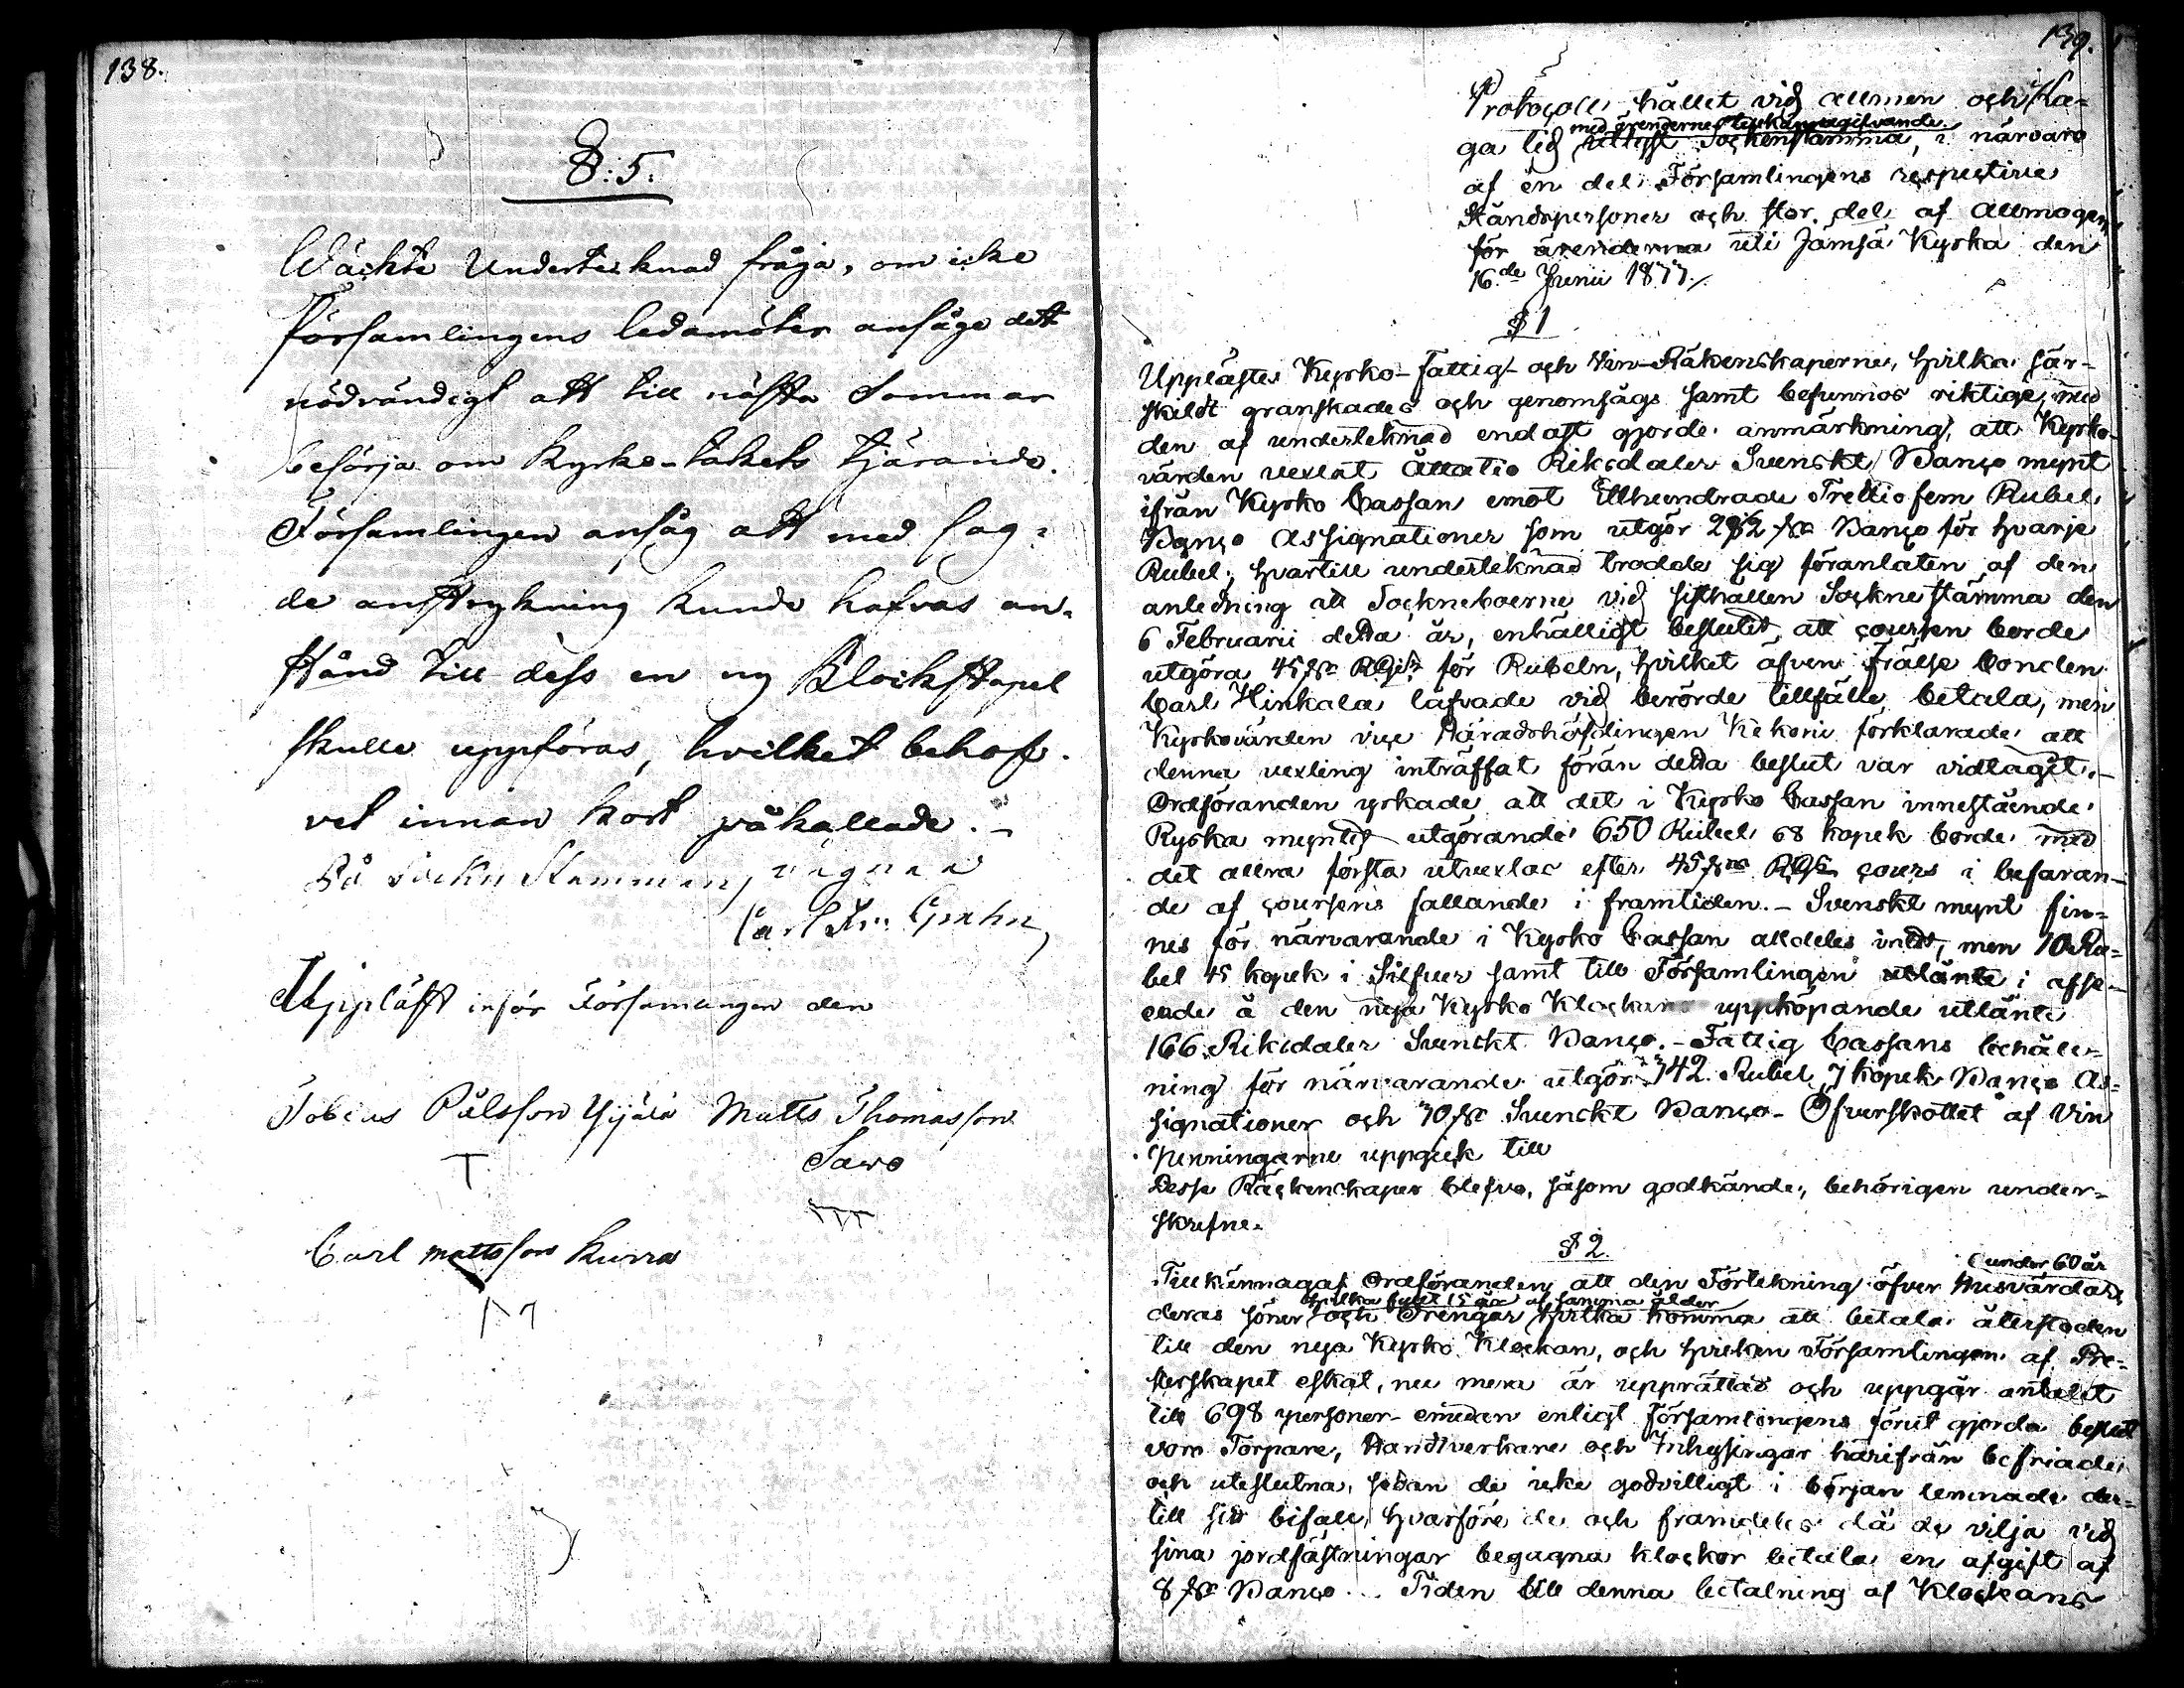 138.
§:5.
Wäckte Undertecknad fråga, om icke
Församlingens ledamöter ansåge det
nödvändigt att till nästa Sommar
besörja om Kyrko-takets tjärande.
Församlingen ansåg att med sag-
de anstrykning kunde hafvas an-
stånd till dess en ny Klockstapel
skulle uppföras, hvilket behof-
vet innan kort påkallade.-
På Sockn Stemmans vägnar
Carl Fr: Grahn
Uppläst inför Församlingen den
Tobias Pålsson Matts Thomasson
Sawo
Carl Mattsson Kurra
139.
Protocoll, hållet vid allmen och La-
med ärendernes tillkännagifvande
ga lid utlyst Sockenstämma, i närvaro
af en del Församlingens respective
Ståndspersoner och stor del af Allmogen,
för ärenderna uti Jämsä Kyrka den
16.de Junii 1811./.
§ 1
Upplästes Kyrko- Fattig- och Vin-Räkenskaperne, hvilka sär-
skildt granskades och genomsågs samt befunnos riktige, med
den af undertecknad endast gjorde anmärkning, att Kyrko-
värden vexlat Åttatio Riksdaler Svenskt Banco mynt
ifrån Kyrko Cassan emot Etthundrade Trettiofem Rubel
Banco Assignationer som utgör 28½ sk Banco för hvarje
Rubel; hvartill undertecknad trodde sig föranlåten af den
anledning att Sockneboerne vid sisthållen Sockne stämma den
6 Februarii detta år, enhälligt beslutit, att coursen borde
utgöra 45 sk RGs för Rubeln, hvilket äfven Frälse bonden
Carl Hinkala låfvade vid berörde tillfälle betala, men
Kyrkovärden vice Häradshöfdingen Kekoni förklarade att
denna vexling inträffat förän detta beslut var vidtagit.-
Ordföranden yrkade att det i Kyrko Cassan innestående
Ryska myntet utgörande 650 Rubel 68 kopek borde med
det allra första utvexlas efter 45 sk RGs cours i befaran-
de af coursens fallande i framtiden.- Svenskt mynt fin-
nes för närvarande i Kyrko Cassan alldeles intet, men 10 Ru-
bel 45 kopek i Silfver samt till Församlingen utlånte i afse-
ende å den nya Kyrko Klockans uppköpande utlånte
166 Riksdaler Svenskt Banco.- Fattig Cassans behåll-
ning för närvarande utgör 142 Rubel 7 kopek Banco As-
signationer och 10 sk Svenskt Banco- Öfverskottet af Vin
penningarne uppgick till
Desse Räckenskaper blefvo, såsom godkände, behörigen under-
skrefne.
§ 2.
under 60 år
Tillkännagaf Ordföranden att den Förtekning öfver Husvärdar,
hvilka fyllt 15 åra af samma ålder
deras söner och Drengar hvilka komma att betala återstoden
till den nya Kyrko Klockan, och hvilken Församlingen af Pre-
sterskapet eskat, nu mera är upprättad och uppgår antalet
till 698 personer- emedan enligt Församlingens förut gjorda beslut
vore Torpare, Handtverkare och Inhysingar härifrån befriade
och uteslutna, sedan de icke godvilligt i början lemnade der-
till sitt bifall, hvarföre de och framdeles då de vilja vid
sina jordfästningar begagna klockor betala en afgift af
8 sk Banco... Tiden till denna betalning af Klockans